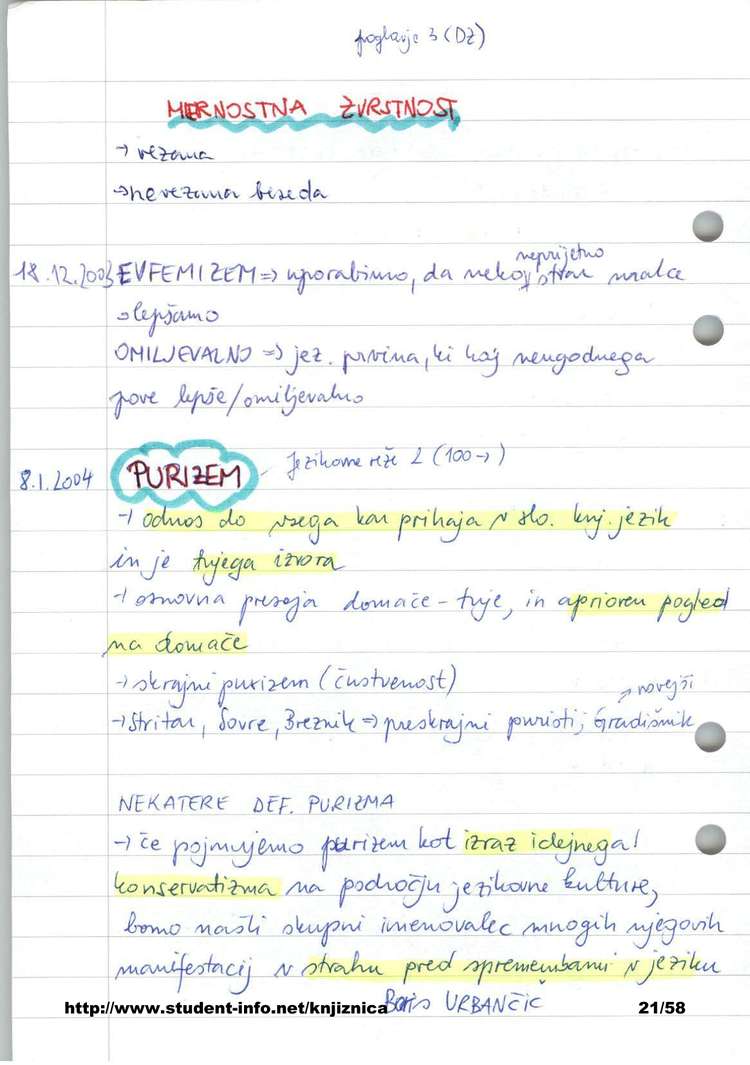 poglavje 3 (DZ)
MERNOSTNA ZVRSTNOST
→ vezana
→ nevezana beseda
neprijetno
18.12.2003 EVFEMIZEM => uporabimo, da nekoj stvar malce
olepšamo
OMILJEVALNO => jez. prvina, ki kaj neugodnega
pove lepše/omiljevalno
8.1.2004 PURIZEM - Jezikovne reže 2 (100→)
→ odnos do vsega kar prihaja v slo. knj. jezik
in je tujega izvora
→ osnovna presoja domače - tuje, in aprioren pogled
na domače
→ skrajni purizem (čustvenost)
→ novejši
→ Stritar, Sovre, Breznik => preskrajni puristi; Gradišnik
NEKATERE DEF. PURIZMA
→ če pojmujemo purizem kot izraz idejnega!
konservatizma na področju jezikovne kulture,
bomo našli skupni imenovalec mnogih njegovih
manifestacij v strahu pred spremembami v jeziku
Boris URBANČIČ
http://www.student-info.net/knjiznica 21/58